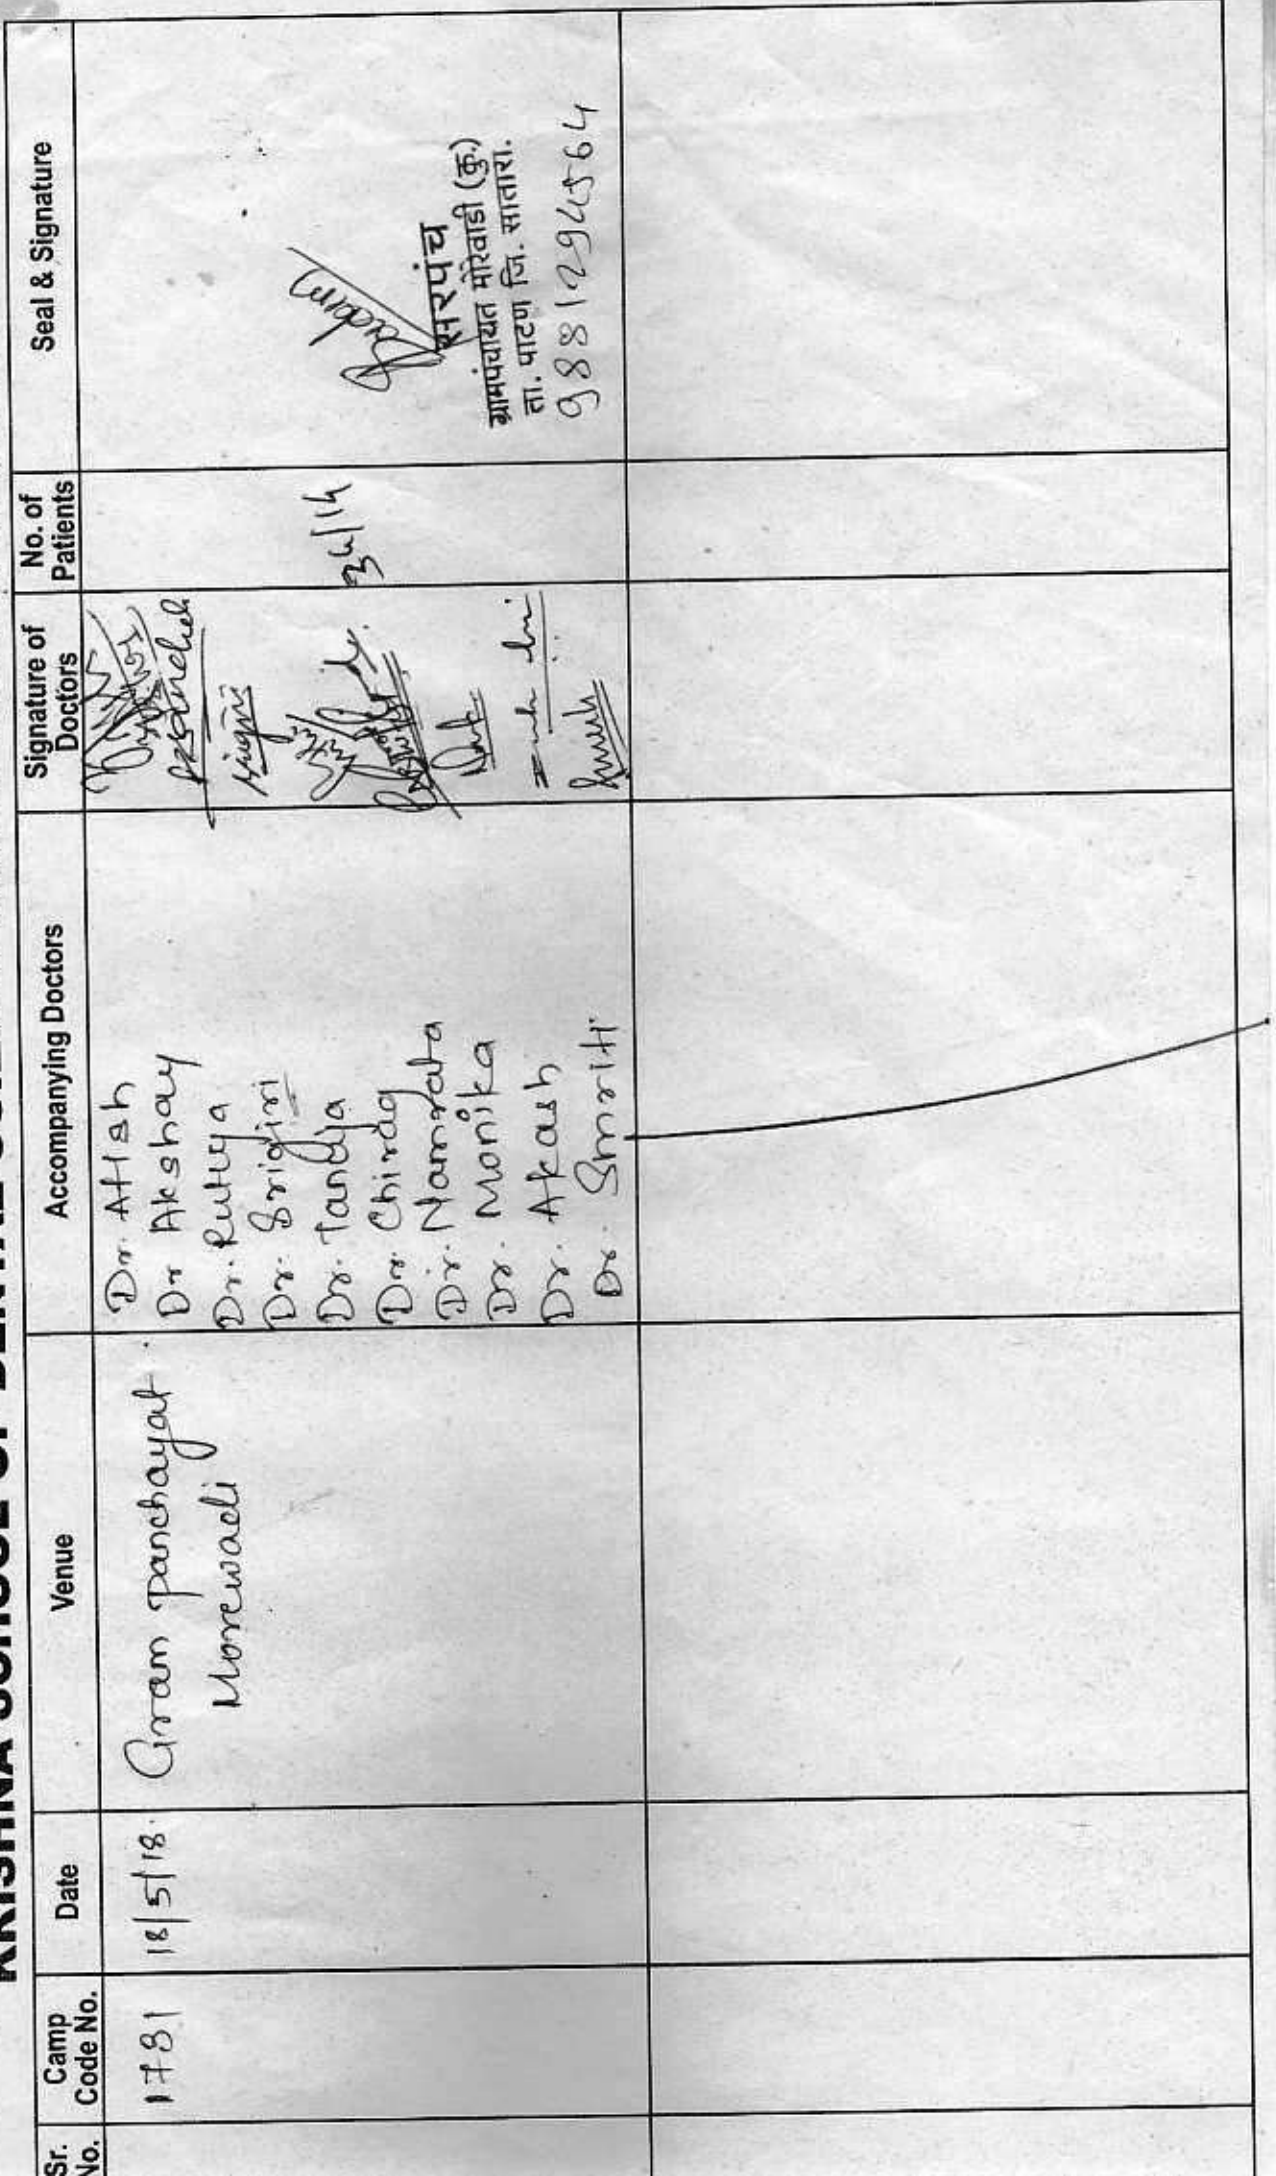 KRISHNA SCHOOL OF DENTAL
Sr. No.
Camp Code No.
Date
Venue
Accompanying Doctors
Signature of Doctors
No. of Patients
Seal & Signature
1781
18/5/18.
Gram panchayat.
Morewadi
Dr. Atish
Dr Akshay
Dr. Rutuja
Dr. Srigiri
Dr. Tanuja
Dr. Chirag
Dr. Namrata
Dr. Monika
Dr. Akash
Dr. Smriti
34/14
सरपंच
ग्रामपंचायत मोरेवाडी (कु.)
ता. पाटण जि. सातारा.
9881294564